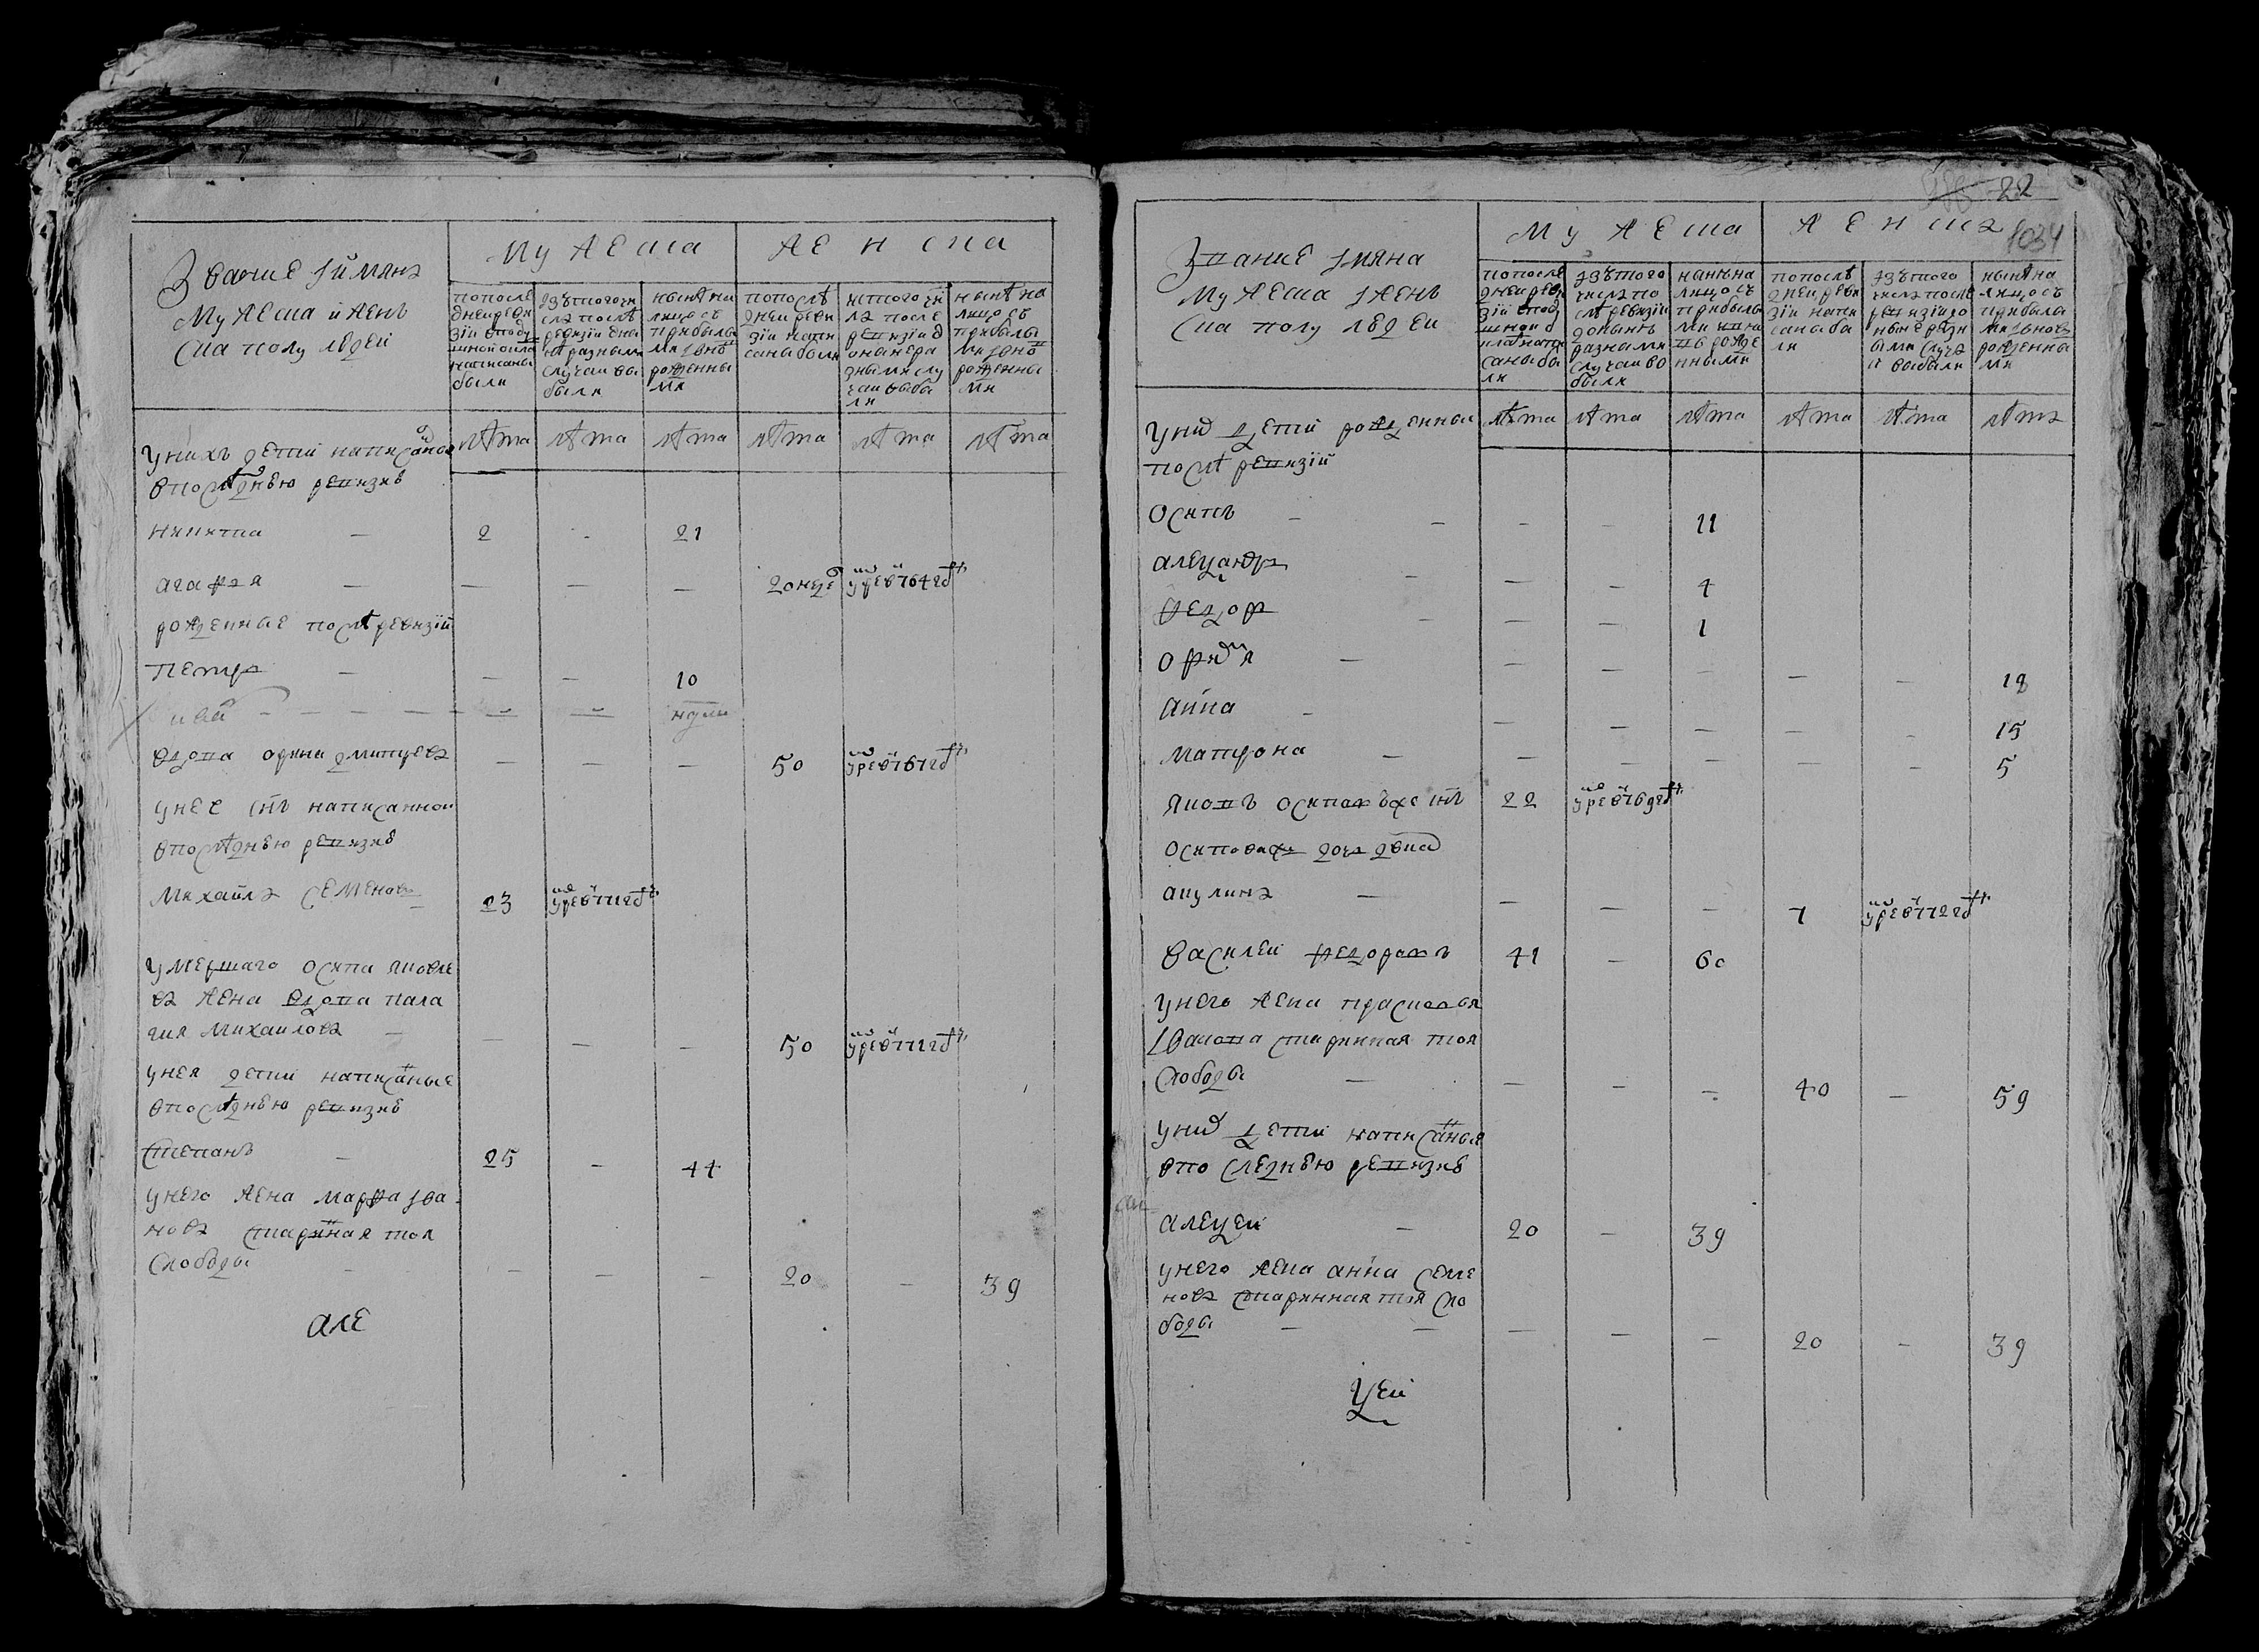 Звание и имянъ
Мужеска и женъ
ска полу людеи
Мужеска
женска
по после
дней реви
зіи в поду
шной окла
написаны
были
изъ того чи
сла после
ревизіи до ны
не разными
случаи вы
были
ныне на
лицо съ
прибылы
ми и вновь
рожденны
ми
по после
дней реви
зіи напи
саны были
ис того чи
ла после
ревизіи д
о ныне ра
зными слу
чаи выбы
ли
ныне на
лицо съ
прибылы
ми и вновь
рожденны
ми
лета лета лета лета лета лета
у нихъ детей написаные
в последнюю ревизию
никита 2 - 21
агафья 20 недѣ умре в 764 годѣ
рожденные после ревизіи
петръ 10
ива нѣдели
вдова орина дмитрева 50 умре в 767 годѣ
у нее сынъ написанной
в последнюю ревизию
Михаила Семеновъ 23 умре в 771 годѣ
умершаго осипа яковле
ва жена вдова пала
гия Михайлова 50 умре в 772 годѣ
у нея детей написаные
в последнюю ревизию
Степанъ 25 - 44
у него жена марфа ива
нова старинная тоя
слободы 20 - 39
але
22
1034
Звание имяна
Мужеска и женъ
ска полу людеи
Мужеска
женска
по после
дней реви
зіи в под
шной о
клад напи
саны бы
ли
изъ того
числа по
сле ревизіи
до ныне
разными
случаи вы
были
на ныне на
лицо съ
прибылы
ми и вно
вь рожде
нными
по после
дней реви
зіи напи
саны бы
ли
изъ того
числа после
ревизіи до
ныне разн
ыми случа
и выбыли
ныне на
лицо съ
прибылы
ми и вновь
рожденны
ми
лета лета лета лета лета лета
у них детей рожденныя
после ревизіи
Осипъ 11
александръ 4
Федоръ 1
офимя 18
анна 15
матрона 5
яковъ осиповъ сынъ 22 умре в 769 годѣ
осиповых дочь девка
акулина 7 умре в 772 годѣ
василей федоровъ 41 - 60
у него жена прасковья
иванова старинная тоя
слободы 40 - 59
у них детей написаныя
в последнюю ревизию
алексей 20 - 39
у него жена анна семе
нова старинная тоя сло
боды 20 - 39
ксей